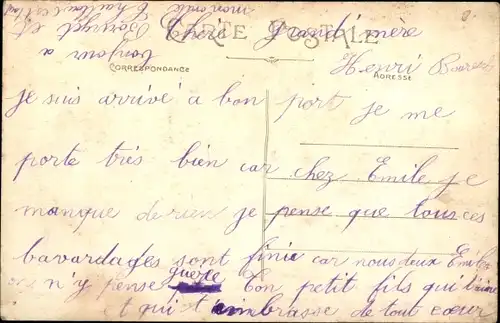 CARTE POSTALE
Chère grand'mère
CORRESPONDANCE
ADRESSE
Henri
je suis arrivé a bon port je me
porte très bien car chez Emile je
manque de rien je pense que tous ces
bavardages sont finie car nous deux Emile
n'y pense guere ton petit fils qui t'aime
t qui t'embrasse de tout cœur
bonjour a